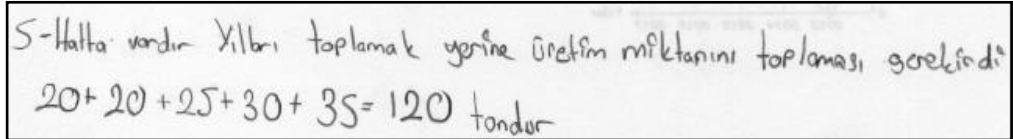 5-Hatta vardır Yılları toplamak yerine üretim miktarını toplaması gerekirdi
20+20+25+30+35=120 tondur